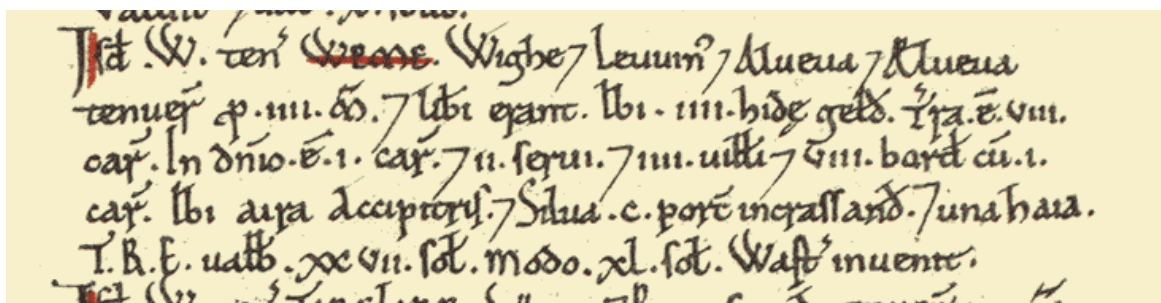 Isd̃ .W. ten᷒ WEME. Wighe ⁊ Leuuin᷒ ⁊ Alueua ⁊ Alueua
tenuer̃ ꝑ .IIII. M̃. ⁊ lib̃i erant. Ibi .IIII. hidę geld̃. T᷒ra .ẽ. VIII.
car̃. In dñio .ẽ. I. car̃. ⁊ II. serui. ⁊ IIII. uilłi ⁊ VIII. bord̃ cũ .I.
car̃. Ibi aira Accipitris. ⁊ Silua .c. porc̃ incrassand̃. ⁊ una haia.
T.R.E. ualb̃ .XXVII. sol̃. Modo .XL. sol̃. Wast᷒ inuenit.